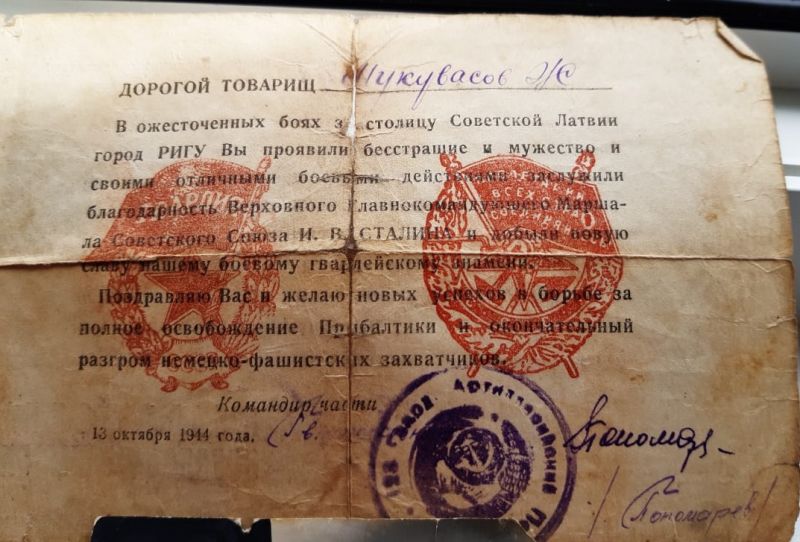 ДОРОГОЙ ТОВАРИЩ Мукувасов Ж
В ожесточенных боях за столицу Советской Латвии
город РИГУ Вы проявили бесстрашие и мужество и
своими отличными боевыми действиями заслужили
благодарность Верховного Главнокомандующего Марша-
ла Советского Союза И. В. СТАЛИНА и добыли новую
славу нашему боевому гвардейскому знамени.
Поздравляю Вас и желаю новых успехов в борьбе за
полное освобождение Прибалтики и окончательный
разгром немецко-фашистских захватчиков.
Командир части
13 октября 1944 года. Гв.
Артиллерийский
Пономар
/Пономарев/
ГВАРДИЯ
ПРОЛЕТАРИИ
ВСЕХ
СТРАН